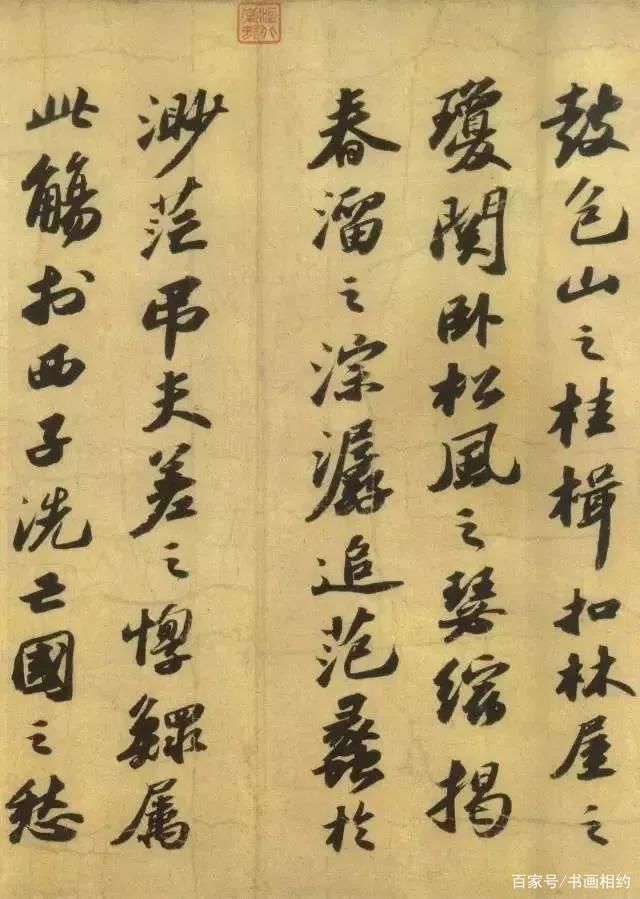 鼓包山之桂楫扣林屋之
瓊関卧松風之瑟縮揭
春溜之淙潺追范蠡於
渺茫吊夫差之惸鰥属
此觴扵西子洗亡國之愁
百家号/书画相约